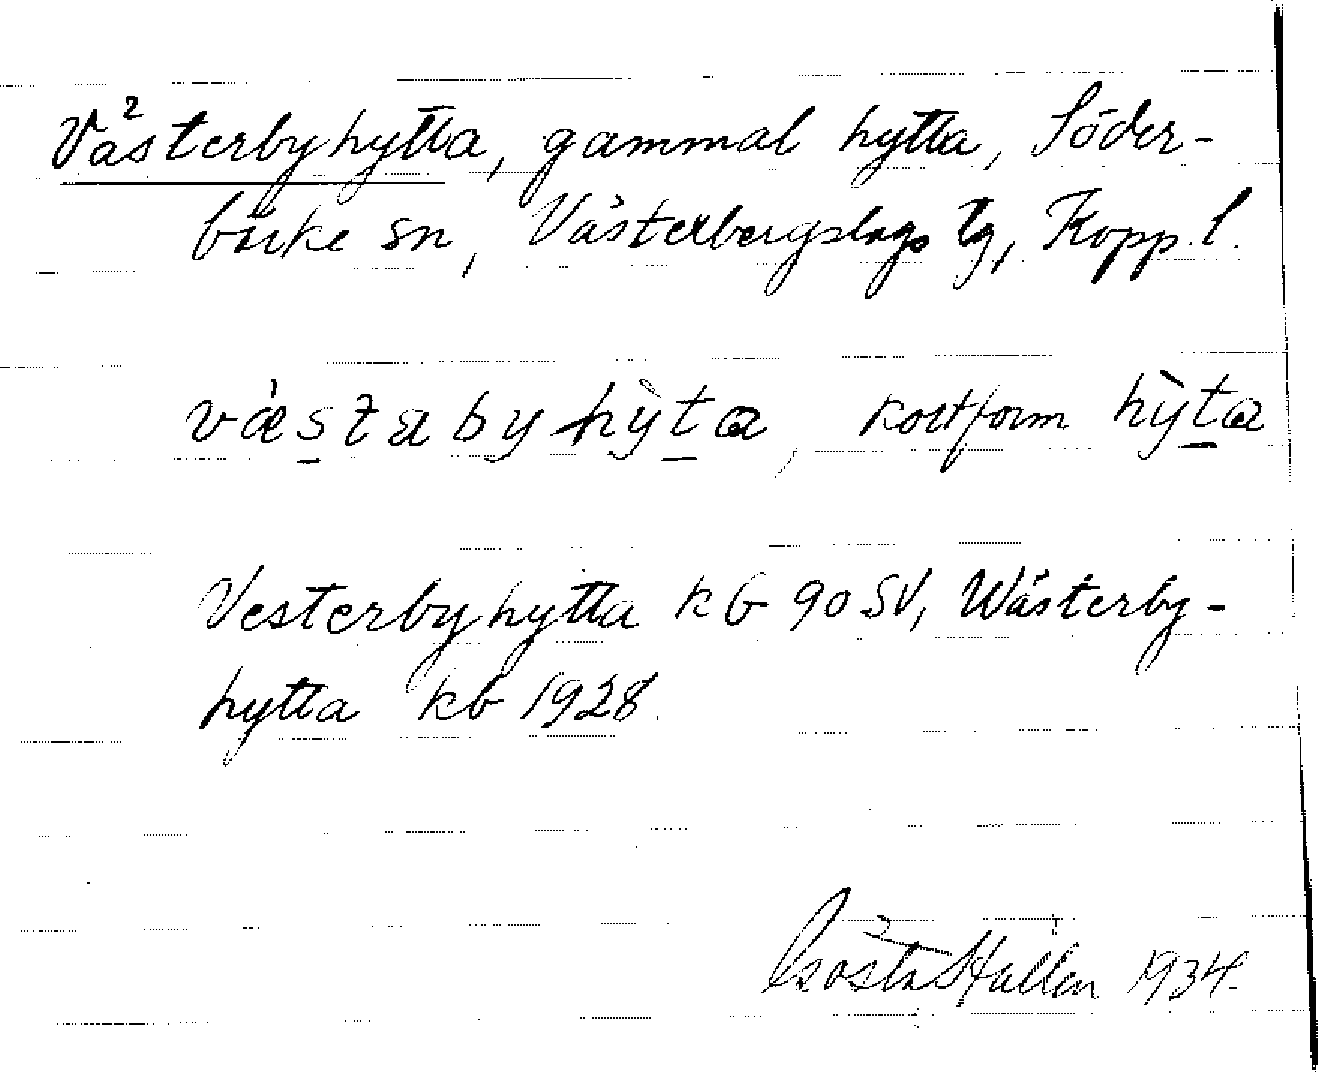 Västerbyhytta, gammal hytta, Söder-
bärke sn, Västerbergslags tg, Kopp. l.
væ̀stabyhy̆̀ta, kortform hỳta
Vesterbyhytta kb 90 SV, Wästerby-
hytta kb 1928.
Gösta Hallén 1934.